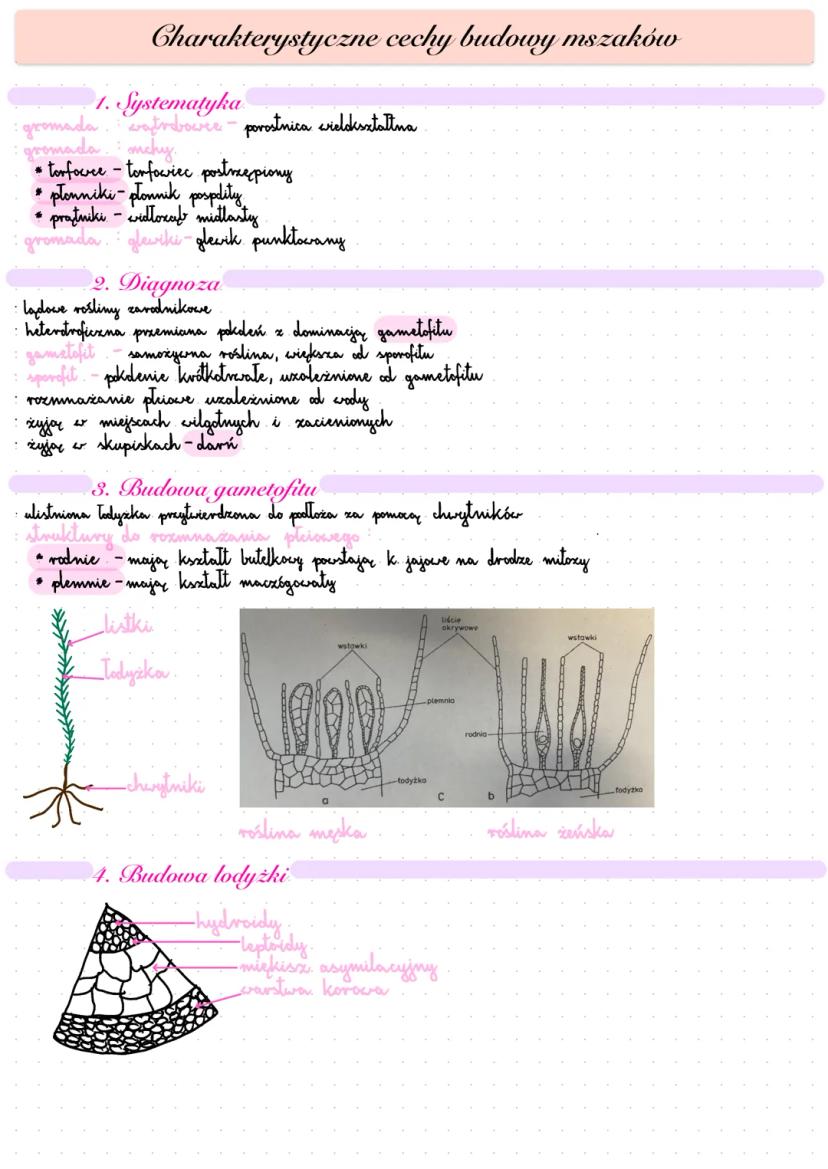 Charakterystyczne cechy budowy mszaków
1. Systematyka
gromada : wątrobowce - porostnica wielokształtna
gromada : mchy
* torfowce - torfowiec postrzępiony
* płonniki - płonnik pospolity
* prątniki - widłoząb miotlasty
gromada : glewiki - glewik punktowany
2. Diagnoza
· lądowe rośliny zarodnikowe
· heterotroficzna przemiana pokoleń z dominacją gametofitu
· gametofit - samożywna roślina, większa od sporofitu
· sporofit - pokolenie krótkotrwałe, uzależnione od gametofitu
· rozmnażanie płciowe uzależnione od wody
· żyją w miejscach wilgotnych i zacienionych
· żyją w skupiskach - darń
3. Budowa gametofitu
· ulistniona łodyżka przytwierdzona do podłoża za pomocą chwytników
· struktury do rozmnażania płciowego :
* rodnie - mają kształt butelkowy powstają k. jajowe na drodze mitozy
* plemnie - mają kształt maczógowaty
listki
łodyżka
chwytniki
wstawki
liście okrywowe
wstawki
plemnia
rodnia
łodyżka
łodyżka
a
C
b
roślina męska
roślina żeńska
4. Budowa lodyżki
hydroidy
leptoidy
miękisz asymilacyjny
warstwa korowa